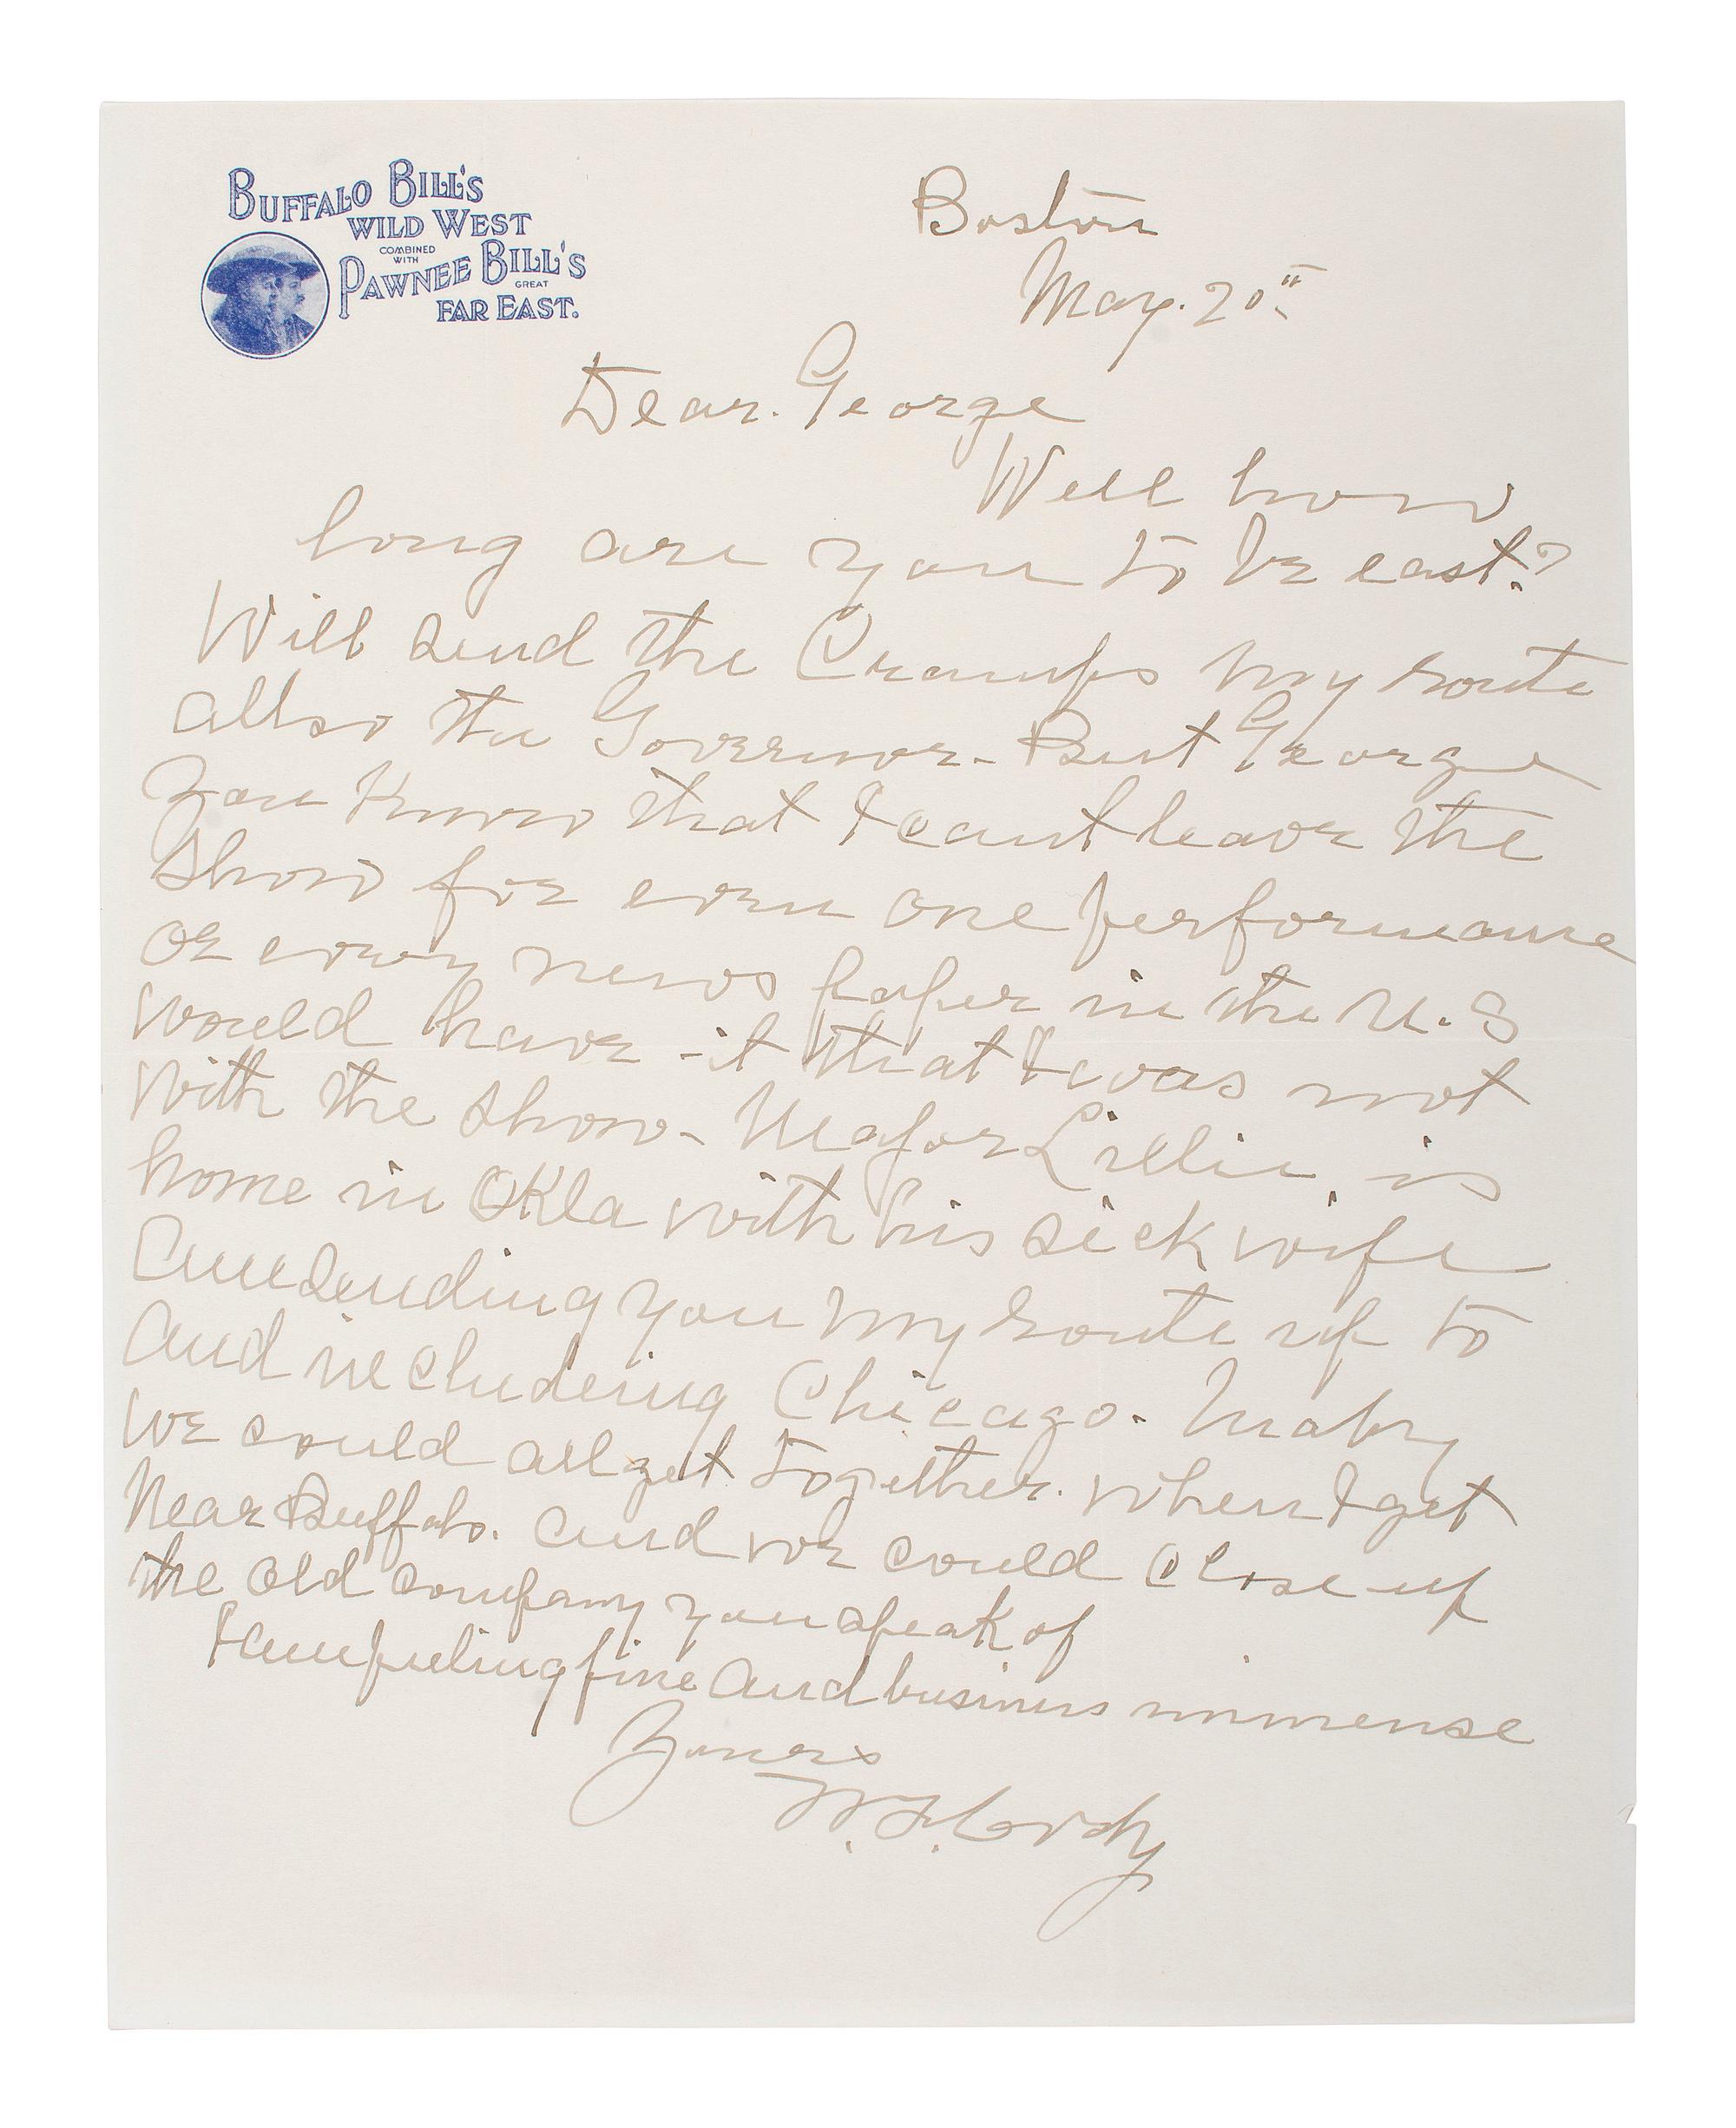 BUFFALO BILL'S
WILD WEST
COMBINED
WITH
PAWNEE BILL'S
GREAT
FAR EAST.
Boston
May. 20"
Dear. George
Well how
long are you to be east?
Will send the Cramps my route
allso the Governor - But George
you know that I cant leave the
Show for even one performance
or every news paper in the U.S
would have it that I was not
with the show - Major Lillie is
home in Okla with his sick wife
Am sending you my route up to
And including Chicago. Maby
we could all get together. when I get
Near Buffalo. And we could close up
the old company you speak of
I am feeling fine and business immense
Yours
W. F. Cody